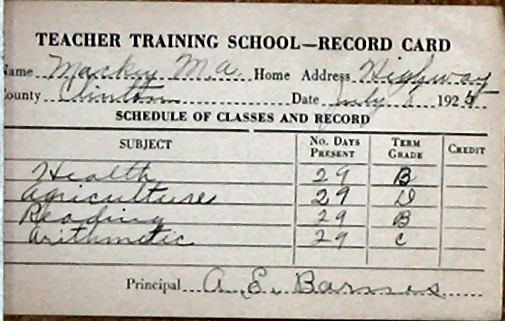 TEACHER TRAINING SCHOOL—RECORD CARD
Name Mackey M.A. Home Address Highway
County Clinton Date July 1924
SCHEDULE OF CLASSES AND RECORD
SUBJECT NO. DAYS PRESENT TERM GRADE CREDIT
Health 29 B
Agriculture 29 D
Reading 29 B
Arithmetic 29 C
Principal A. E. Barnes